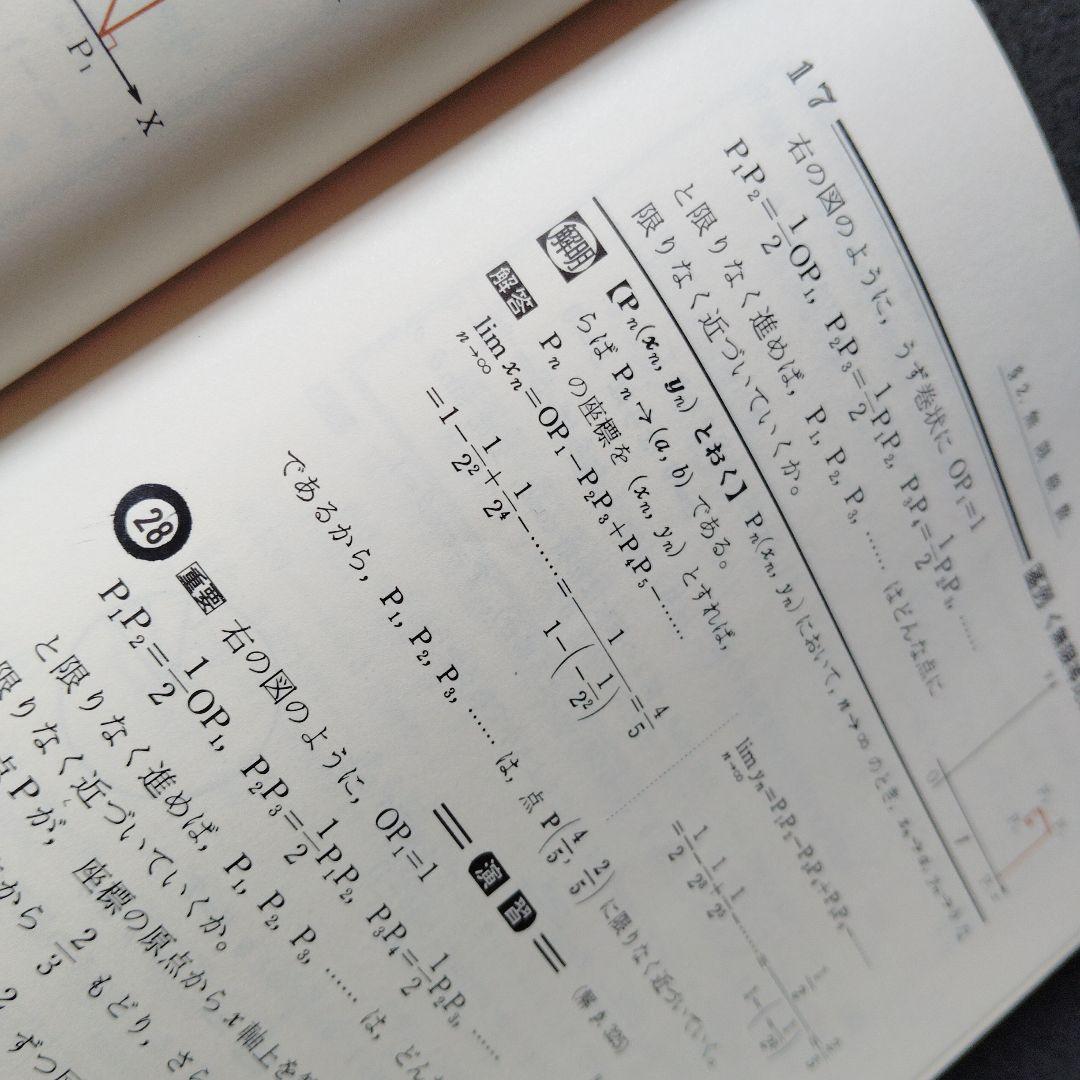 P₁
X
§2. 無限級数
17
右の図のように，うず巻状に OP₁=1
P₁P₂=1/2 OP₁, P₂P₃=1/2 P₁P₂, P₃P₄=1/2 P₂P₃, ……
と限りなく進めば，P₁, P₂, P₃, …… はどんな点に
限りなく近づいていくか。
解明 【Pₙ(xₙ, yₙ) とおく】 Pₙ(xₙ, yₙ) において，n→∞ のとき，
らば Pₙ→(a, b) である。
解答 Pₙ の座標を (xₙ, yₙ) とすれば，
lim n→∞ xₙ=OP₁−P₂P₃+P₄P₅−……
=1−1/2²+1/2⁴−……=1/(1−(−1/2²))=4/5
lim n→∞ yₙ=P₁P₂−P₃P₄+P₅P₆−……
=1/2−1/2³+1/2⁵−……=
であるから，P₁, P₂, P₃, …… は，点 P(4/5, 2/5) に限りなく近づいていく。
演習
(解 p. 325)
28 重要 右の図のように，OP₁=1
P₁P₂=1/2 OP₁, P₂P₃=1/2 P₁P₂, P₃P₄=1/2 P₂P₃, ……
と限りなく進めば，P₁, P₂, P₃, …… は，どん
限りなく近づいていくか。
点Pが，座標の原点から x 軸上を
から 2/3 もどり，さら
ずつ